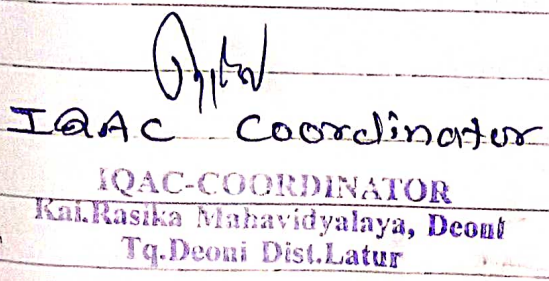 IQAC Coordinator
IQAC-COORDINATOR
Kai.Rasika Mahavidyalaya, Deoni
Tq.Deoni Dist.Latur